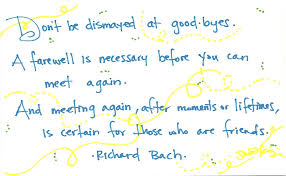 Don't be dismayed at good-byes.
A farewell is necessary before you can
meet again.
And meeting again, after moments or lifetimes,
is certain for those who are friends.
·Richard Bach·